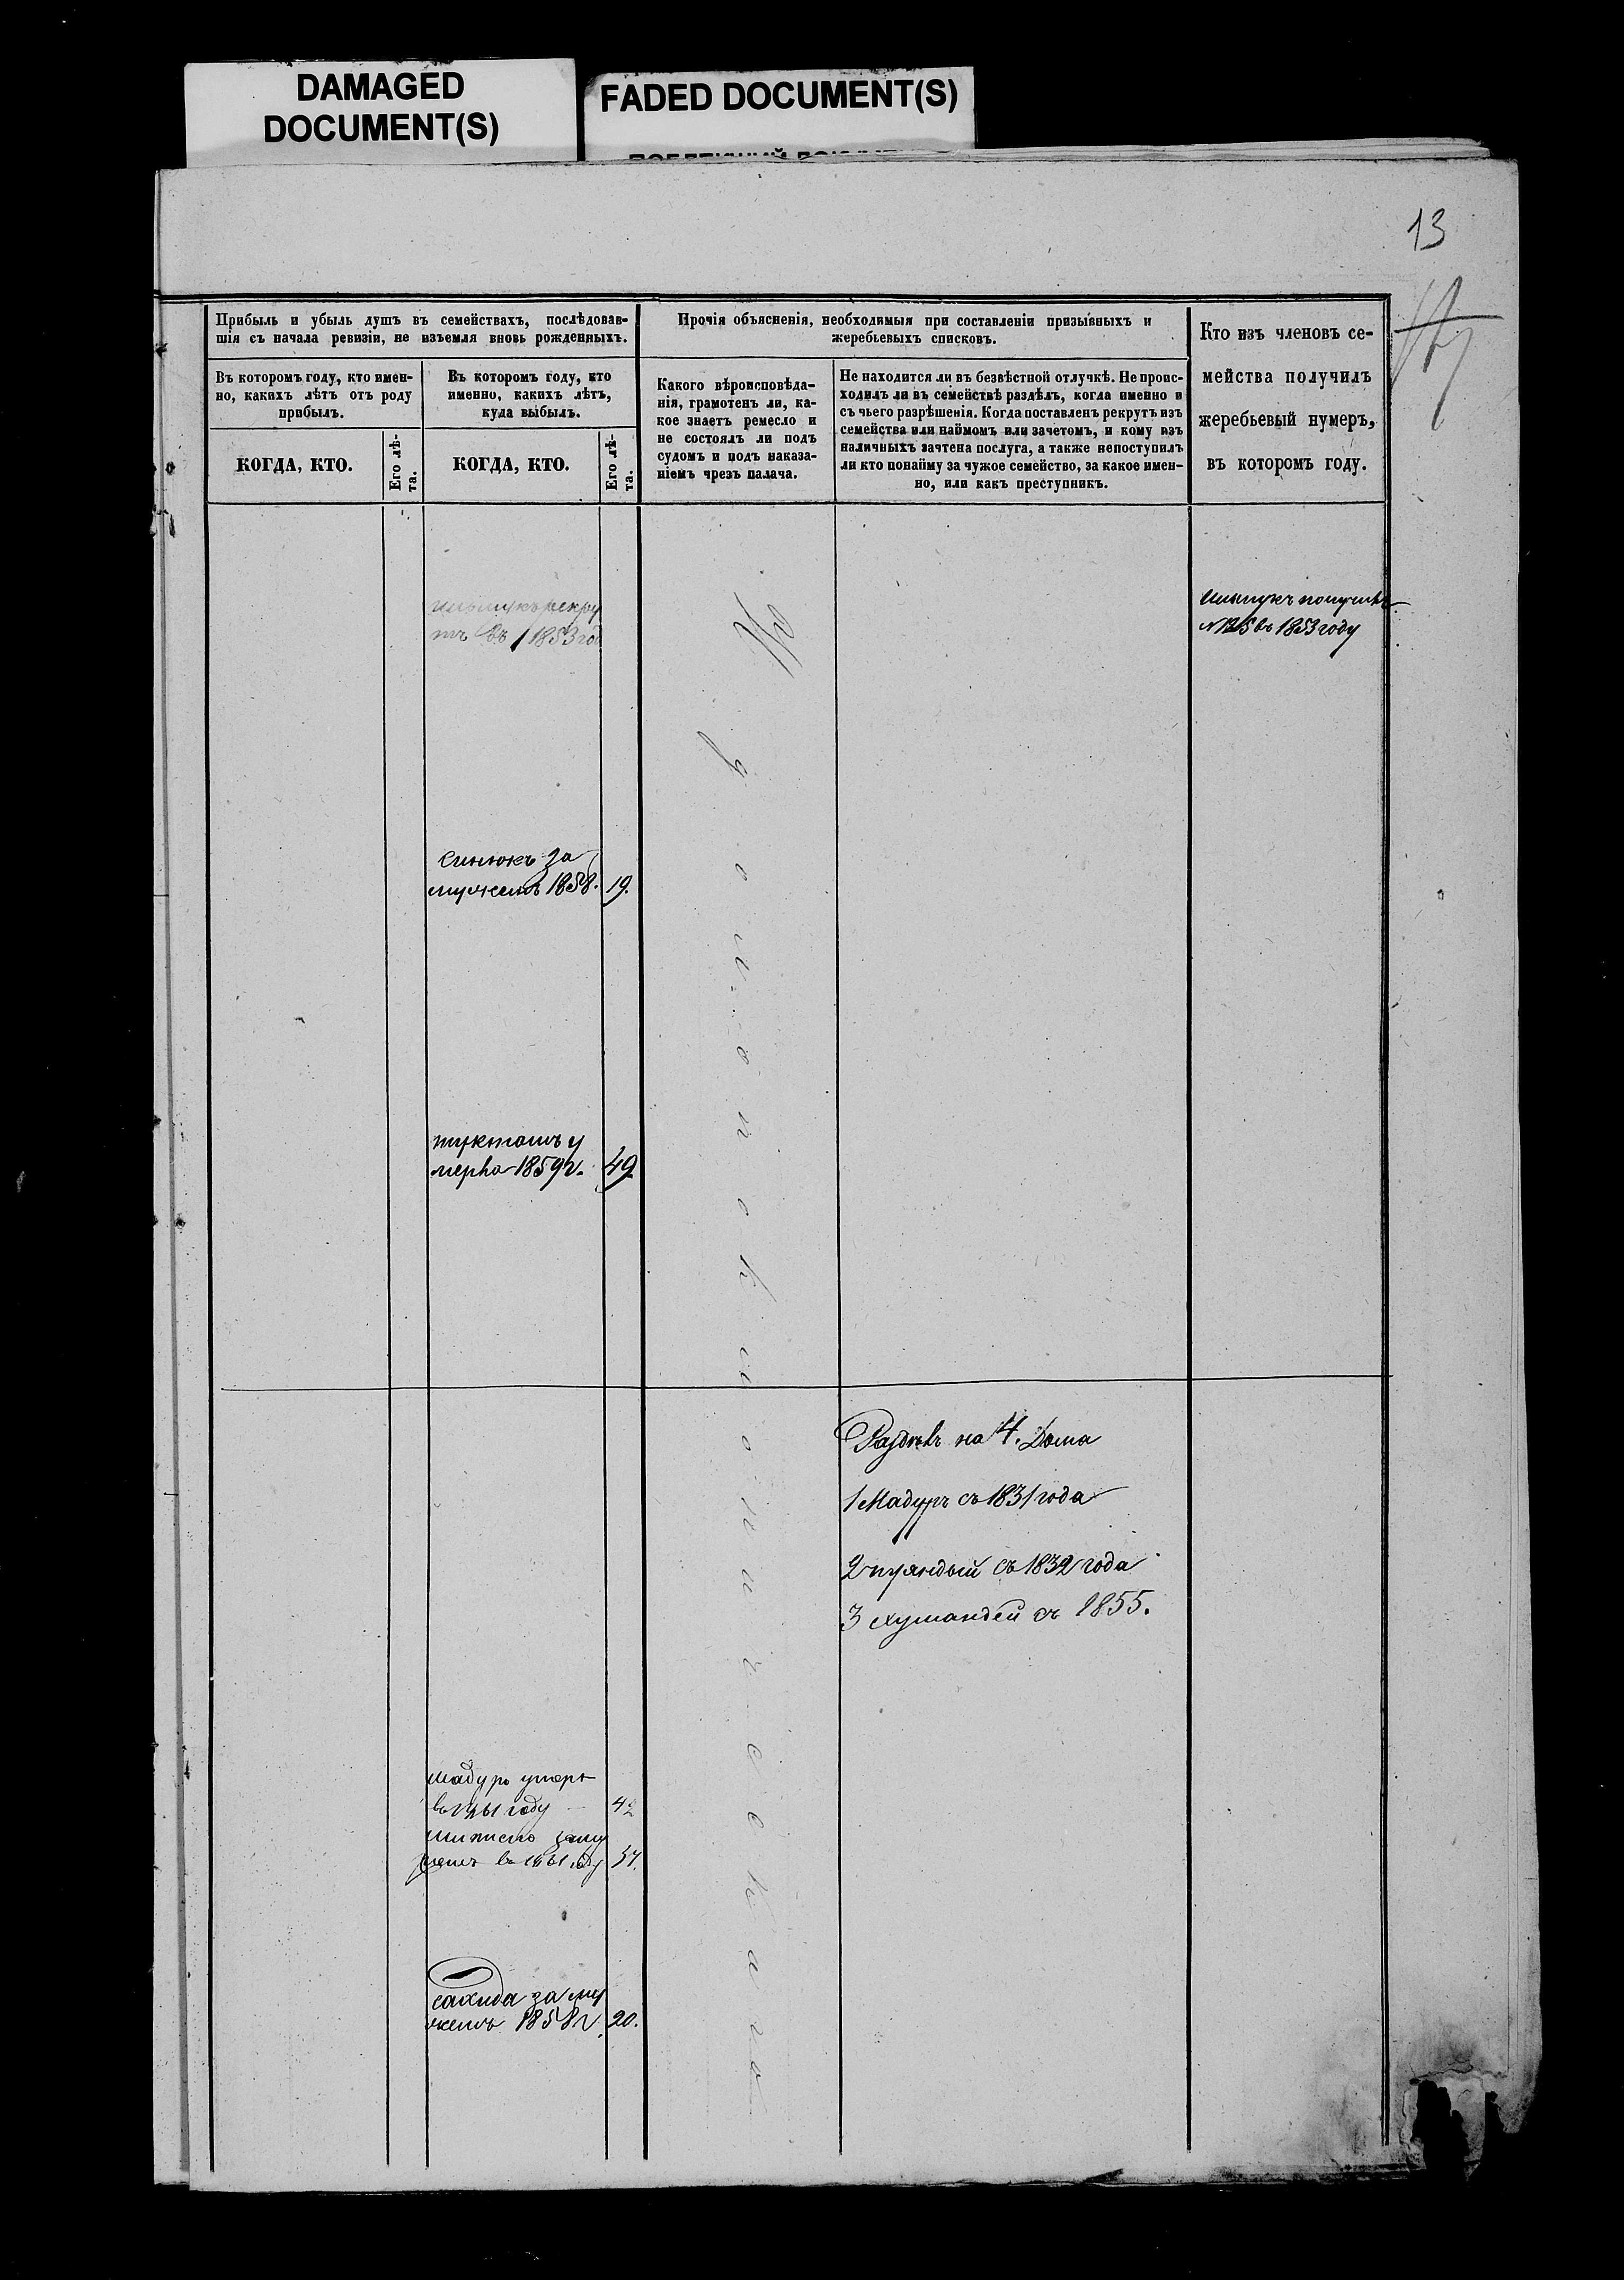 DAMAGED
DOCUMENT(S)
FADED DOCUMENT(S)
13
Прибыль и убыль душъ въ семействахъ, послѣдовав-
шія съ начала ревизіи, не изъемля вновь рожденныхъ.
Въ которомъ году, кто имен-
но, какихъ лѣтъ отъ роду
прибылъ.
КОГДА, КТО.
Его лѣ-
та.
Въ которомъ году, кто
именно, какихъ лѣтъ,
куда выбылъ.
КОГДА, КТО.
Его лѣ-
та.
Прочія объясненія, необходимыя при составленіи призывныхъ и
жеребьевыхъ списковъ.
Какого вѣроисповѣда-
нія, грамотенъ ли, ка-
кое знаетъ ремесло и
не состоялъ ли подъ
судомъ и подъ наказа-
ніемъ чрезъ палача.
Не находится ли въ безвѣстной отлучкѣ. Не проис-
ходилъ ли въ семействѣ раздѣлъ, когда именно и
съ чьего разрѣшенія. Когда поставленъ рекрутъ изъ
семейства или наймомъ или зачетомъ, и кому изъ
наличныхъ зачтена послуга, а также непоступилъ
ли кто понайму за чужое семейство, за какое имен-
но, или какъ преступникъ.
Кто изъ членовъ се-
мейства получилъ
жеребьевый нумеръ,
въ которомъ году.
рекру
тъ въ 1853 го
получилъ
въ 1853 году
синюкъ за
мужемъ 1858. 19.
тукташъ у
мерла 1859 г. 49
Раздѣлъ на 4. Дома
1 Мадуръ съ 1831 года
2 съ 1832 года
3 съ 1855.
мадуръ умеръ
въ 1861 году
заму
жемъ въ 1861 году
сахида за му
жемъ 1858 г. 20.